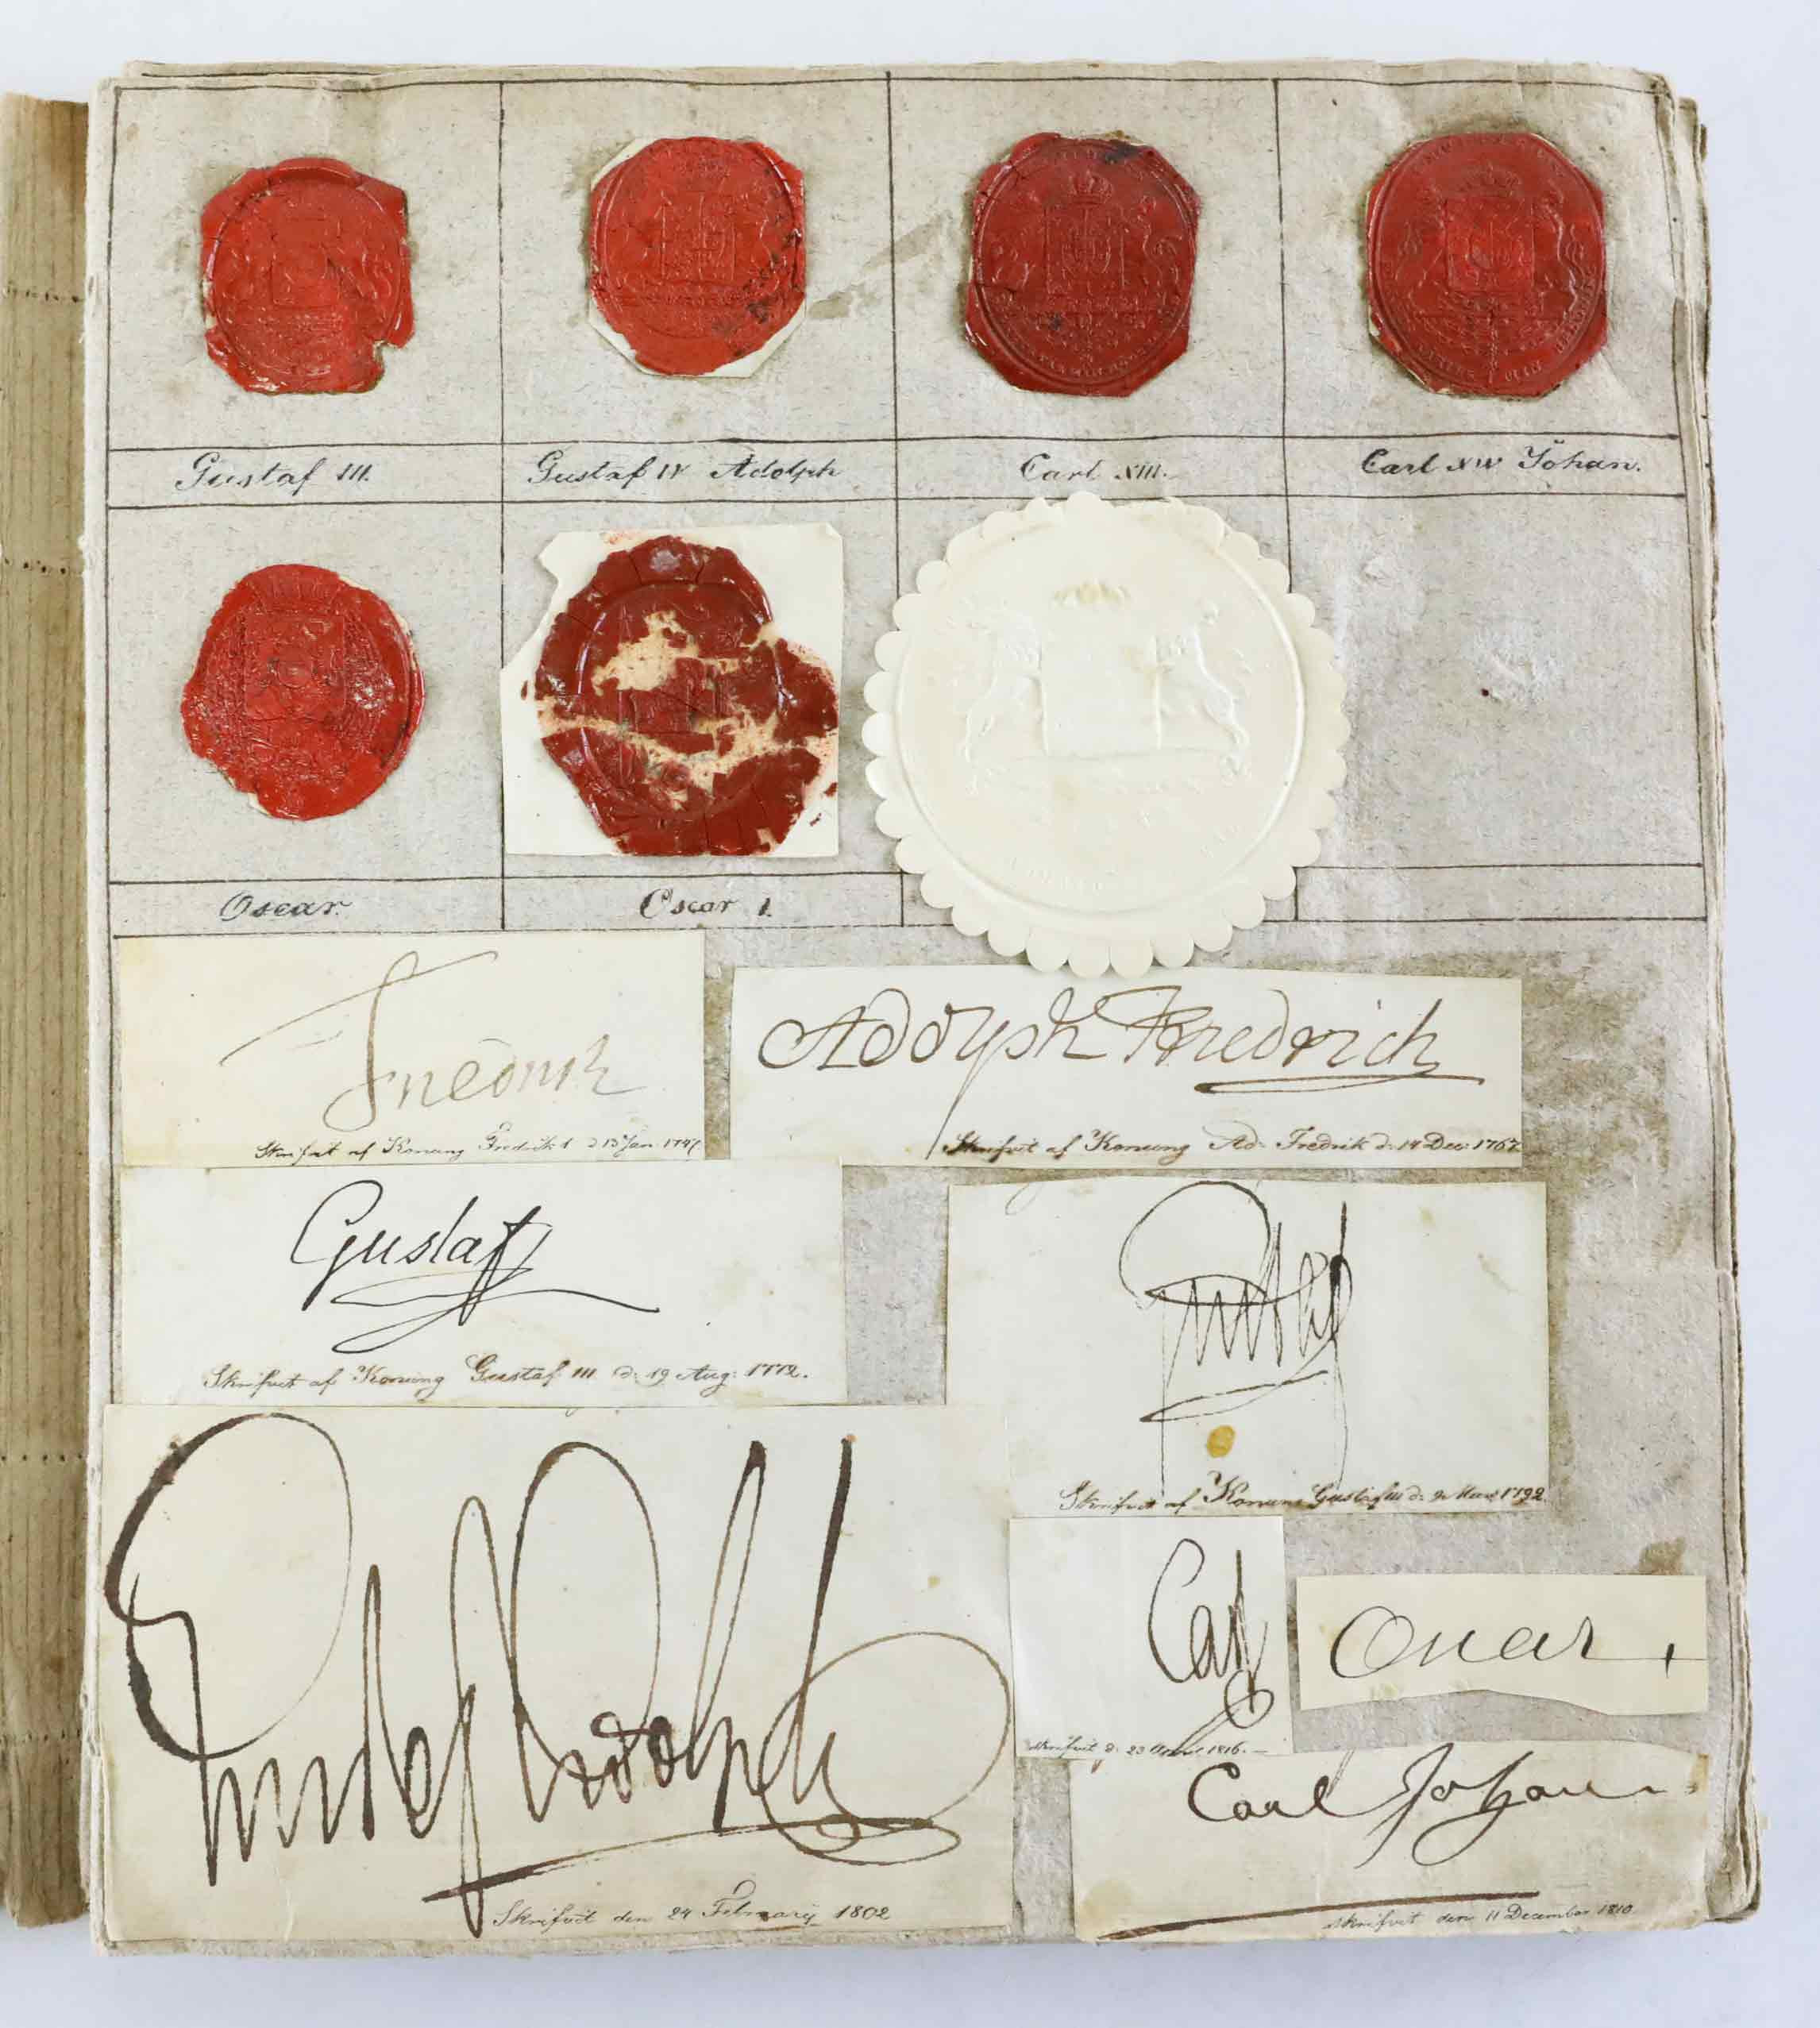 Gustaf III.
Gustaf IV Adolph
Carl XIII.
Carl XIV Johan.
Oscar.
Oscar I.
Friedrich
Skrifvit af Konung Fredrik I d 13 Jan 1747
Adolph Friedrich
Skrifvit af Konung Ad. Fredrik d. 14 Dec: 1767
Gustaf
Skrifvit af Konung Gustaf III d: 19 Aug: 1772.
Gustaf
Skrifvit af Konung Gustaf III d: 1792
Gustaf Adolph
Skrifvit den 24 February 1802
Carl
Skrifvit d. 23 1816.
Oscar
Carl Johan
skrifvit den 11 December 1810